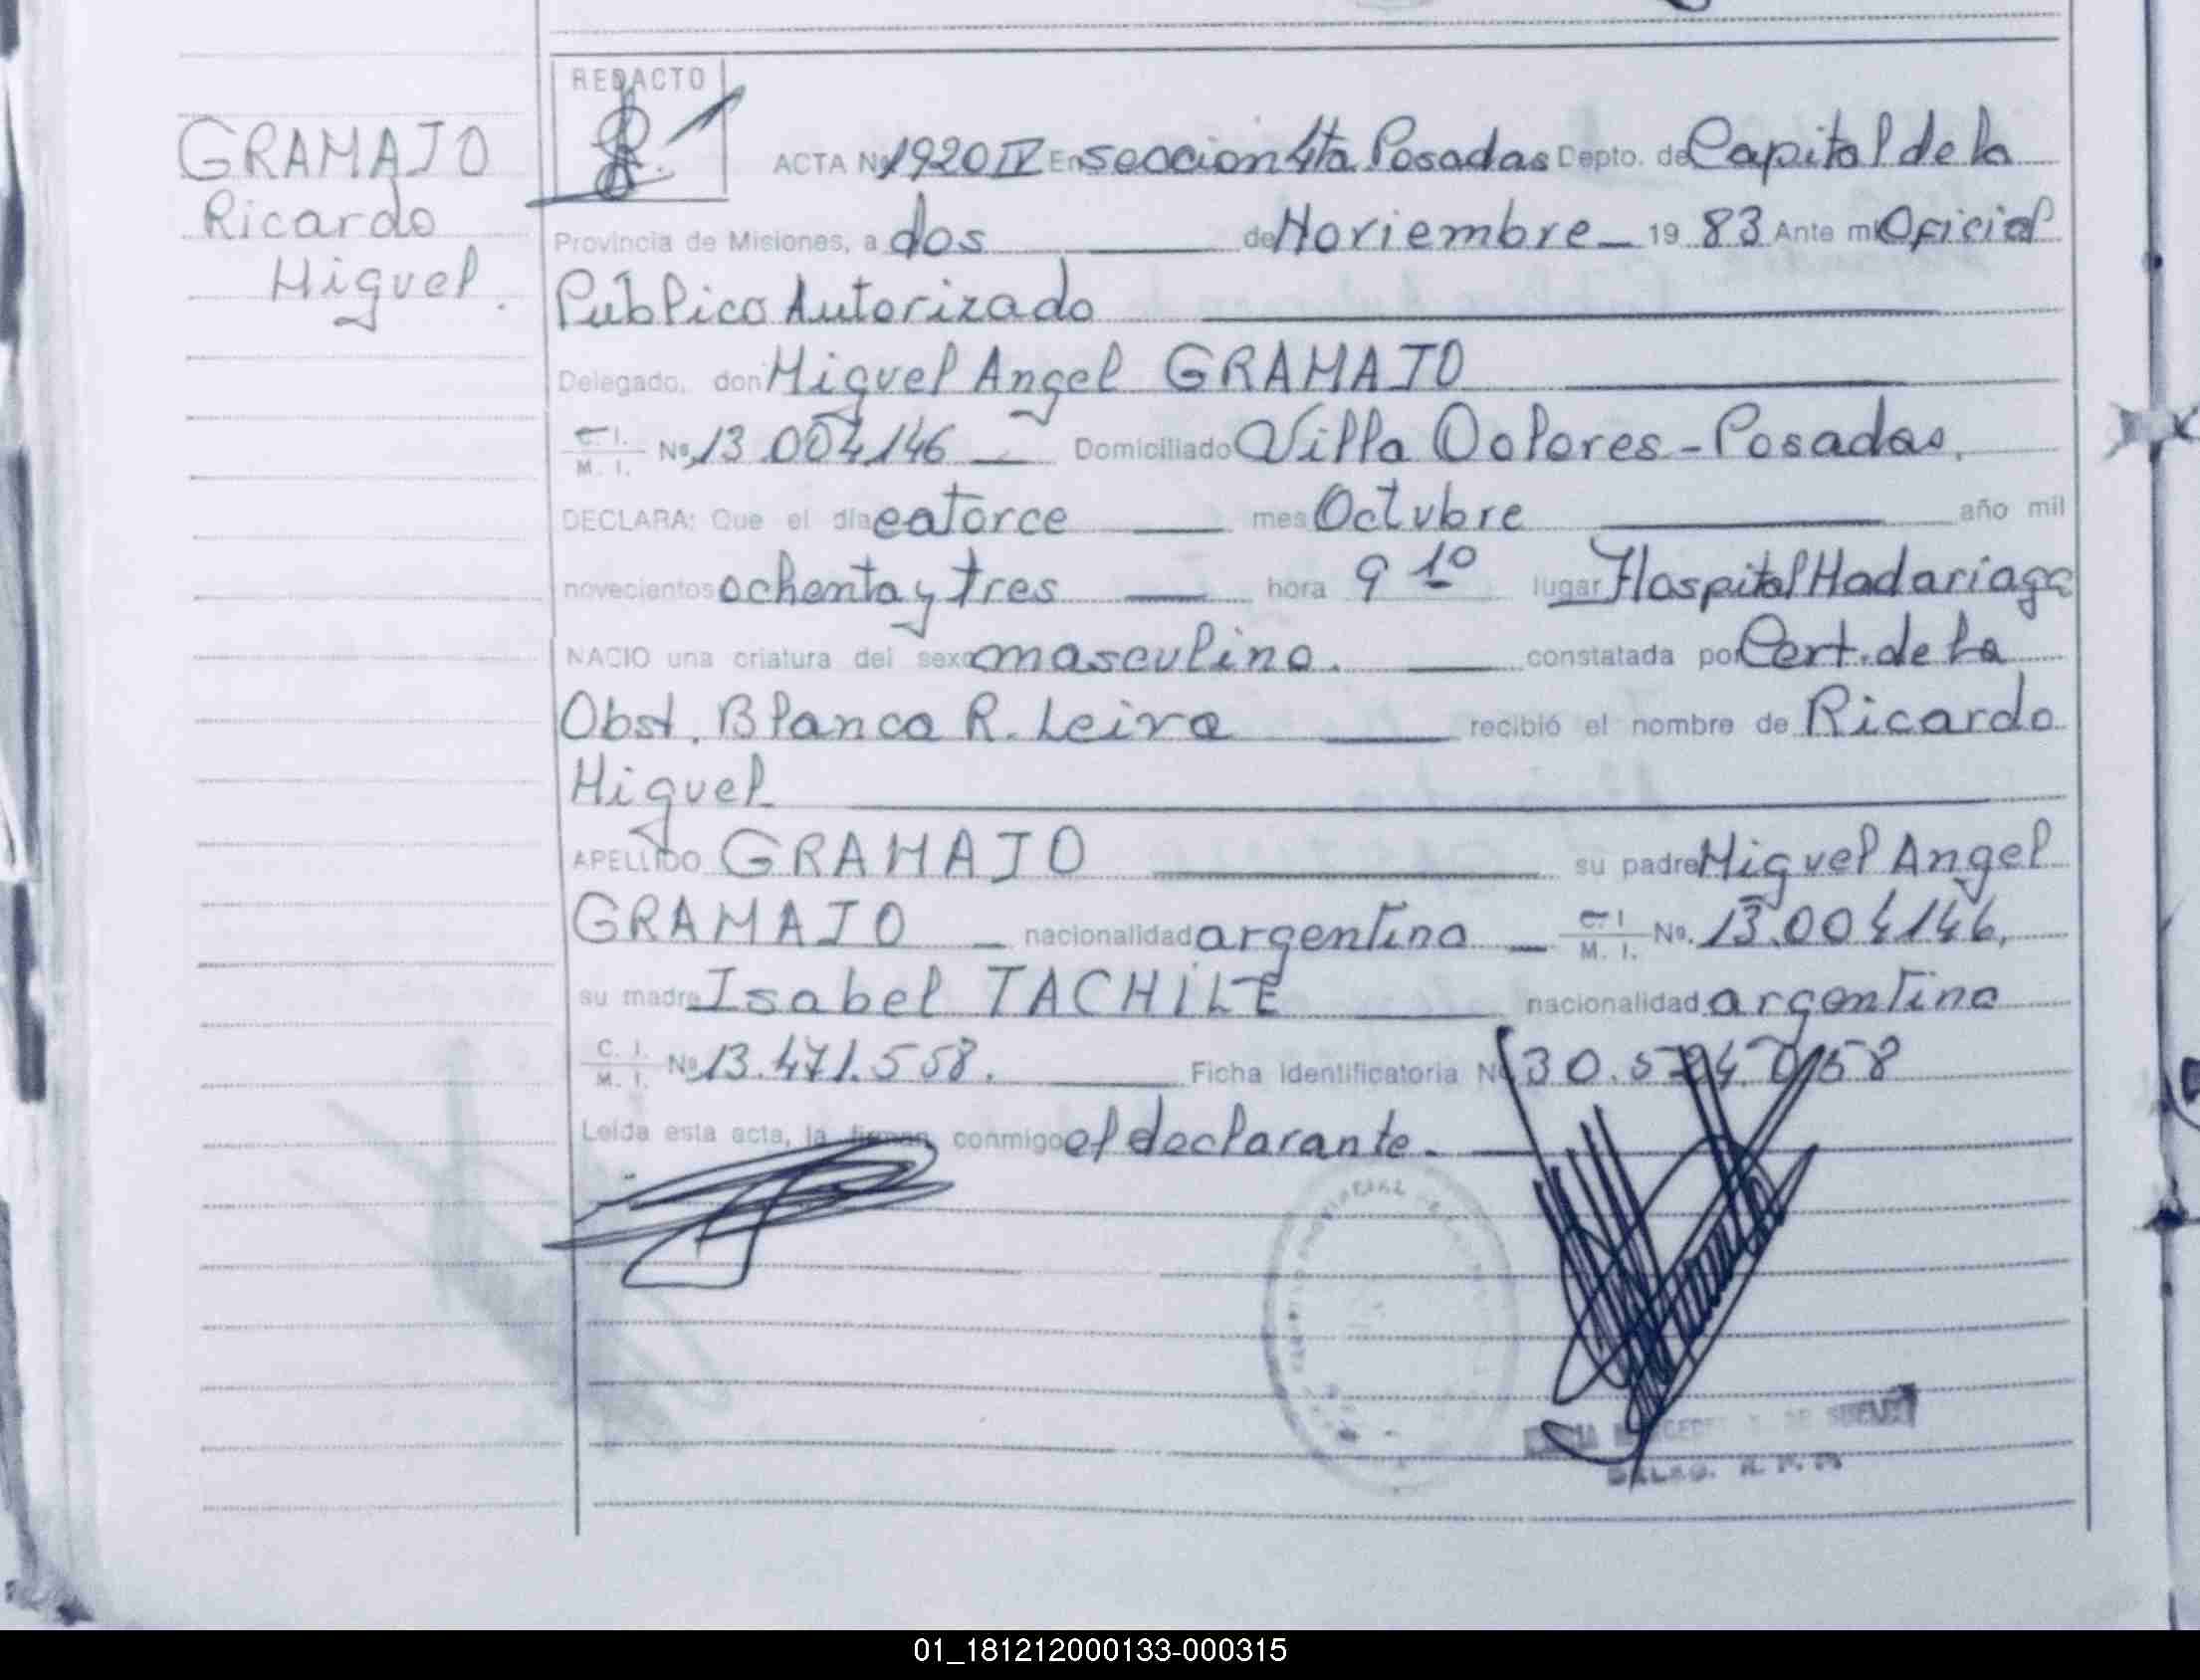 REDACTO
GRAMAJO
Ricardo
Miguel.
ACTA Nº 1920 IV En seccion 4ta Posadas Depto. de Capital de la
Provincia de Misiones, a dos de Noviembre 19 83 Ante mi Oficial
Público Autorizado
Delegado, don Miguel Angel GRAMAJO
C. I. M. I. Nº 13.004.146 Domiciliado Villa Dolores - Posadas.
DECLARA: Que el día catorce mes Octubre año mil
novecientos ochenta y tres hora 9 10 lugar Hospital Madariaga
NACIO una criatura del sexo masculino. constatada por Cert. de la
Obst. Blanca R. Leiva recibió el nombre de Ricardo
Miguel
APELLIDO GRAMAJO su padre Miguel Angel
GRAMAJO nacionalidad argentina C. I. M. I. Nº. 13.004.146.
su madre Isabel TACHILE nacionalidad argentina
C. I. M. I. Nº 13.471.558. Ficha Identificatoria Nº 30.574.058
Leída esta acta, la firman conmigo el declarante.
01_181212000133-000315